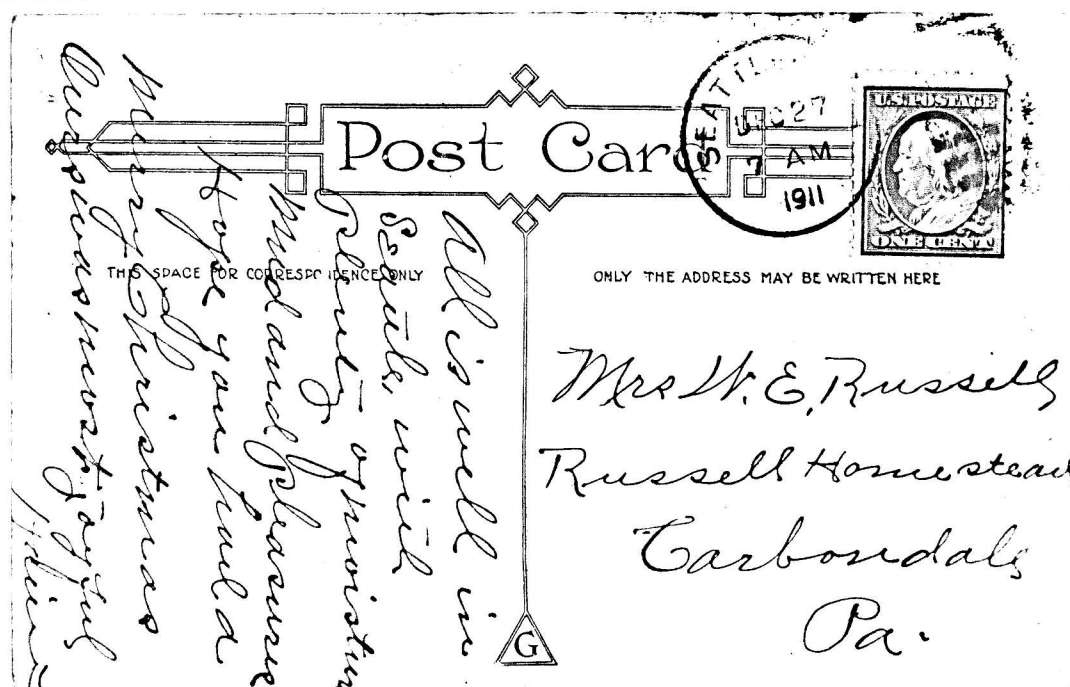 Post Card
SEATTLE
DEC 27
7 AM
1911
U.S. POSTAGE
ONE CENT
THIS SPACE FOR CORRESPONDENCE ONLY
ONLY THE ADDRESS MAY BE WRITTEN HERE
All is well in
Seattle, with
Plenty of moisture
Mud and Pleasure
Hope you had a
Merry Christmas
Ours was most joyful
Mrs W. E. Russell
Russell Homestead
Carbondale
Pa.
G